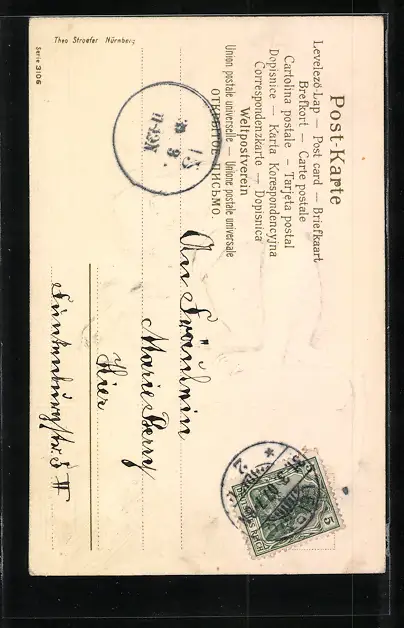 Post-Karte
Levelező-Lap — Post card — Briefkaart
Brefkort — Carte postale
Cartolina postale — Tarjeta postal
Dopisnice — Karta Korespondencyjna
Correspondenzkarte — Dopisnica
Weltpostverein
Union postale universelle — Unione postale universale
ОТКРЫТОЕ ПИСЬМО.
An Fräulein
Marie Berry
Hier
Theo Stroefer Nürnberg
Serie 3106
5